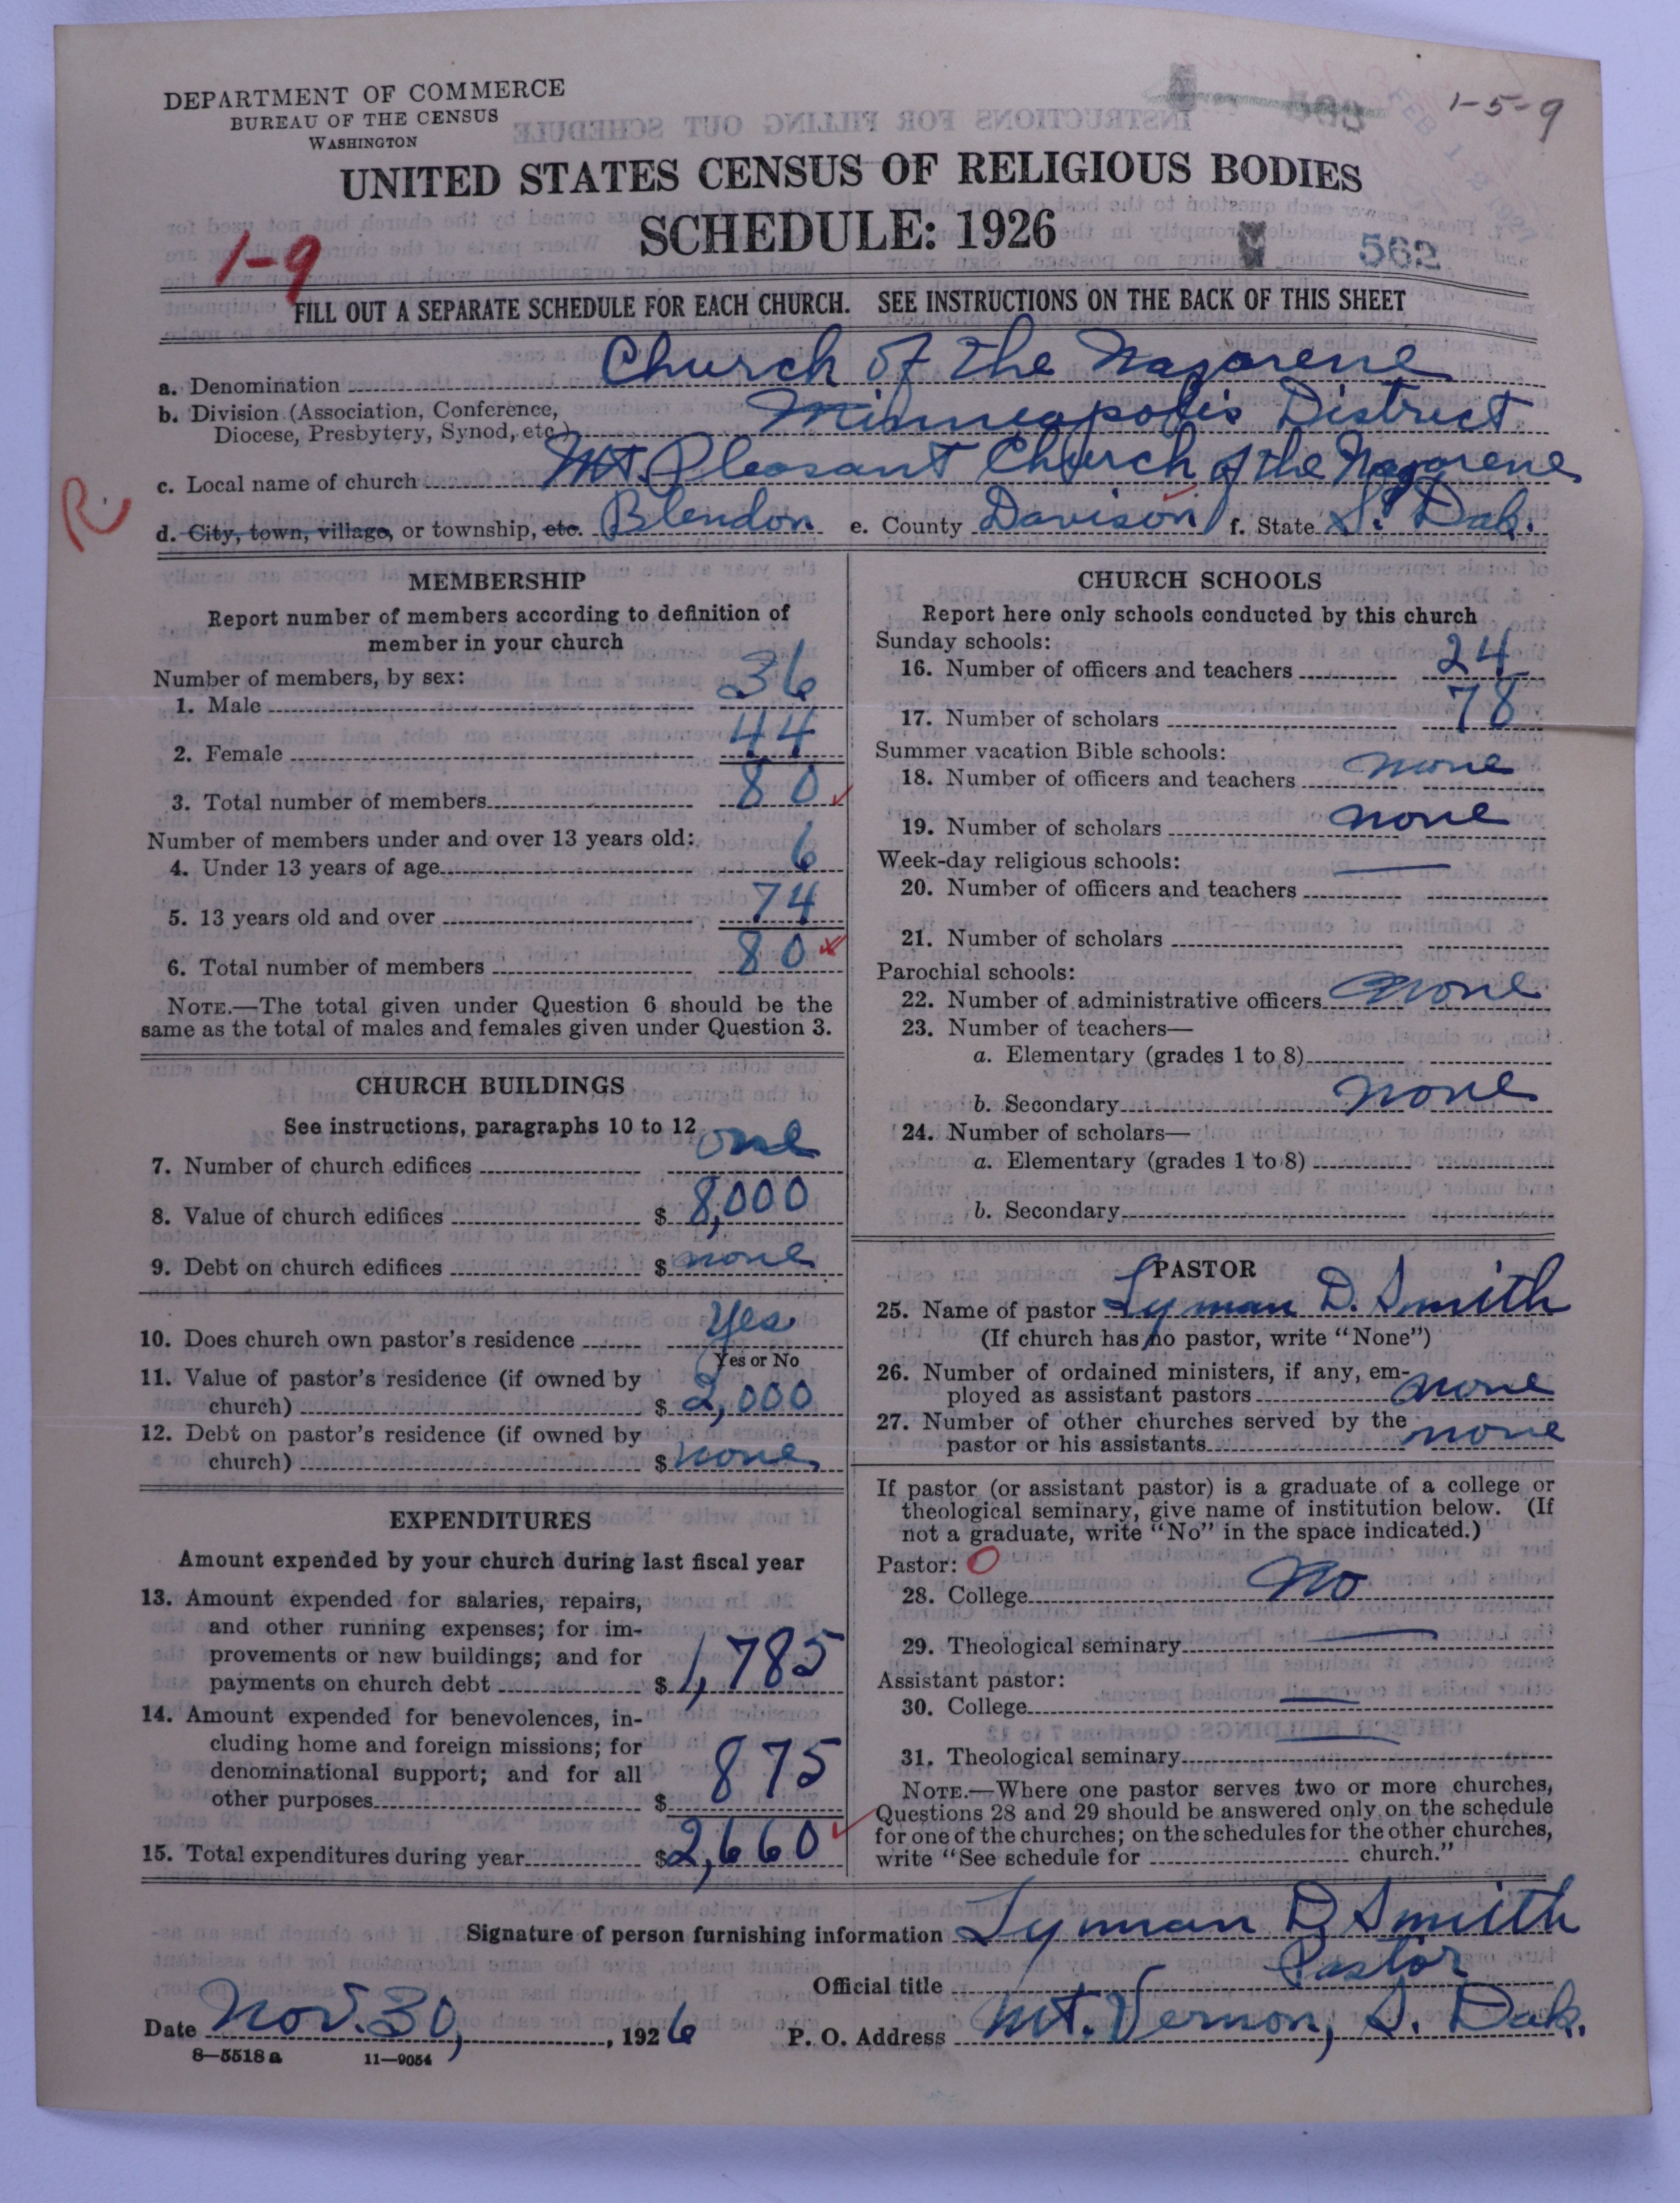 DEPARTMENT OF COMMERCE
BUREAU OF THE CENSUS
WASHINGTON
1-5-9
UNITED STATES CENSUS OF RELIGIOUS BODIES
SCHEDULE: 1926
1-9
562
FILL OUT A SEPARATE SCHEDULE FOR EACH CHURCH. SEE INSTRUCTIONS ON THE BACK OF THIS SHEET
a. Denomination Church of the Nazarene
b. Division (Association, Conference,
Diocese, Presbytery, Synod, etc.) Minneapolis District
c. Local name of church Mt. Pleasant Church of the Nazarene
R.
d. City, town, village, or township, etc. Blendon e. County Davison f. State S. Dak.
MEMBERSHIP
Report number of members according to definition of
member in your church
Number of members, by sex:
1. Male 36
2. Female 44
3. Total number of members 80
Number of members under and over 13 years old:
4. Under 13 years of age 6
5. 13 years old and over 74
6. Total number of members 80
NOTE.—The total given under Question 6 should be the
same as the total of males and females given under Question 3.
CHURCH BUILDINGS
See instructions, paragraphs 10 to 12
7. Number of church edifices one
8. Value of church edifices $ 8,000
9. Debt on church edifices $ none
10. Does church own pastor's residence Yes
Yes or No
11. Value of pastor's residence (if owned by
church) $ 2,000
12. Debt on pastor's residence (if owned by
church) $ none
EXPENDITURES
Amount expended by your church during last fiscal year
13. Amount expended for salaries, repairs,
and other running expenses; for im-
provements or new buildings; and for
payments on church debt $ 1,785
14. Amount expended for benevolences, in-
cluding home and foreign missions; for
denominational support; and for all
other purposes $ 875
15. Total expenditures during year $ 2,660
CHURCH SCHOOLS
Report here only schools conducted by this church
Sunday schools:
16. Number of officers and teachers 24
17. Number of scholars 78
Summer vacation Bible schools:
18. Number of officers and teachers none
19. Number of scholars none
Week-day religious schools:
20. Number of officers and teachers
21. Number of scholars
Parochial schools:
22. Number of administrative officers none
23. Number of teachers—
a. Elementary (grades 1 to 8)
b. Secondary none
24. Number of scholars—
a. Elementary (grades 1 to 8)
b. Secondary
PASTOR
25. Name of pastor Lyman D. Smith
(If church has no pastor, write "None")
26. Number of ordained ministers, if any, em-
ployed as assistant pastors none
27. Number of other churches served by the
pastor or his assistants none
If pastor (or assistant pastor) is a graduate of a college or
theological seminary, give name of institution below. (If
not a graduate, write "No" in the space indicated.)
Pastor: O
28. College No
29. Theological seminary
Assistant pastor:
30. College
31. Theological seminary
NOTE.—Where one pastor serves two or more churches,
Questions 28 and 29 should be answered only on the schedule
for one of the churches; on the schedules for the other churches,
write "See schedule for church."
Signature of person furnishing information Lyman D Smith
Official title Pastor
Date Nov. 30, 1926 P. O. Address Mt. Vernon, S. Dak.
8—5518 a 11—9054